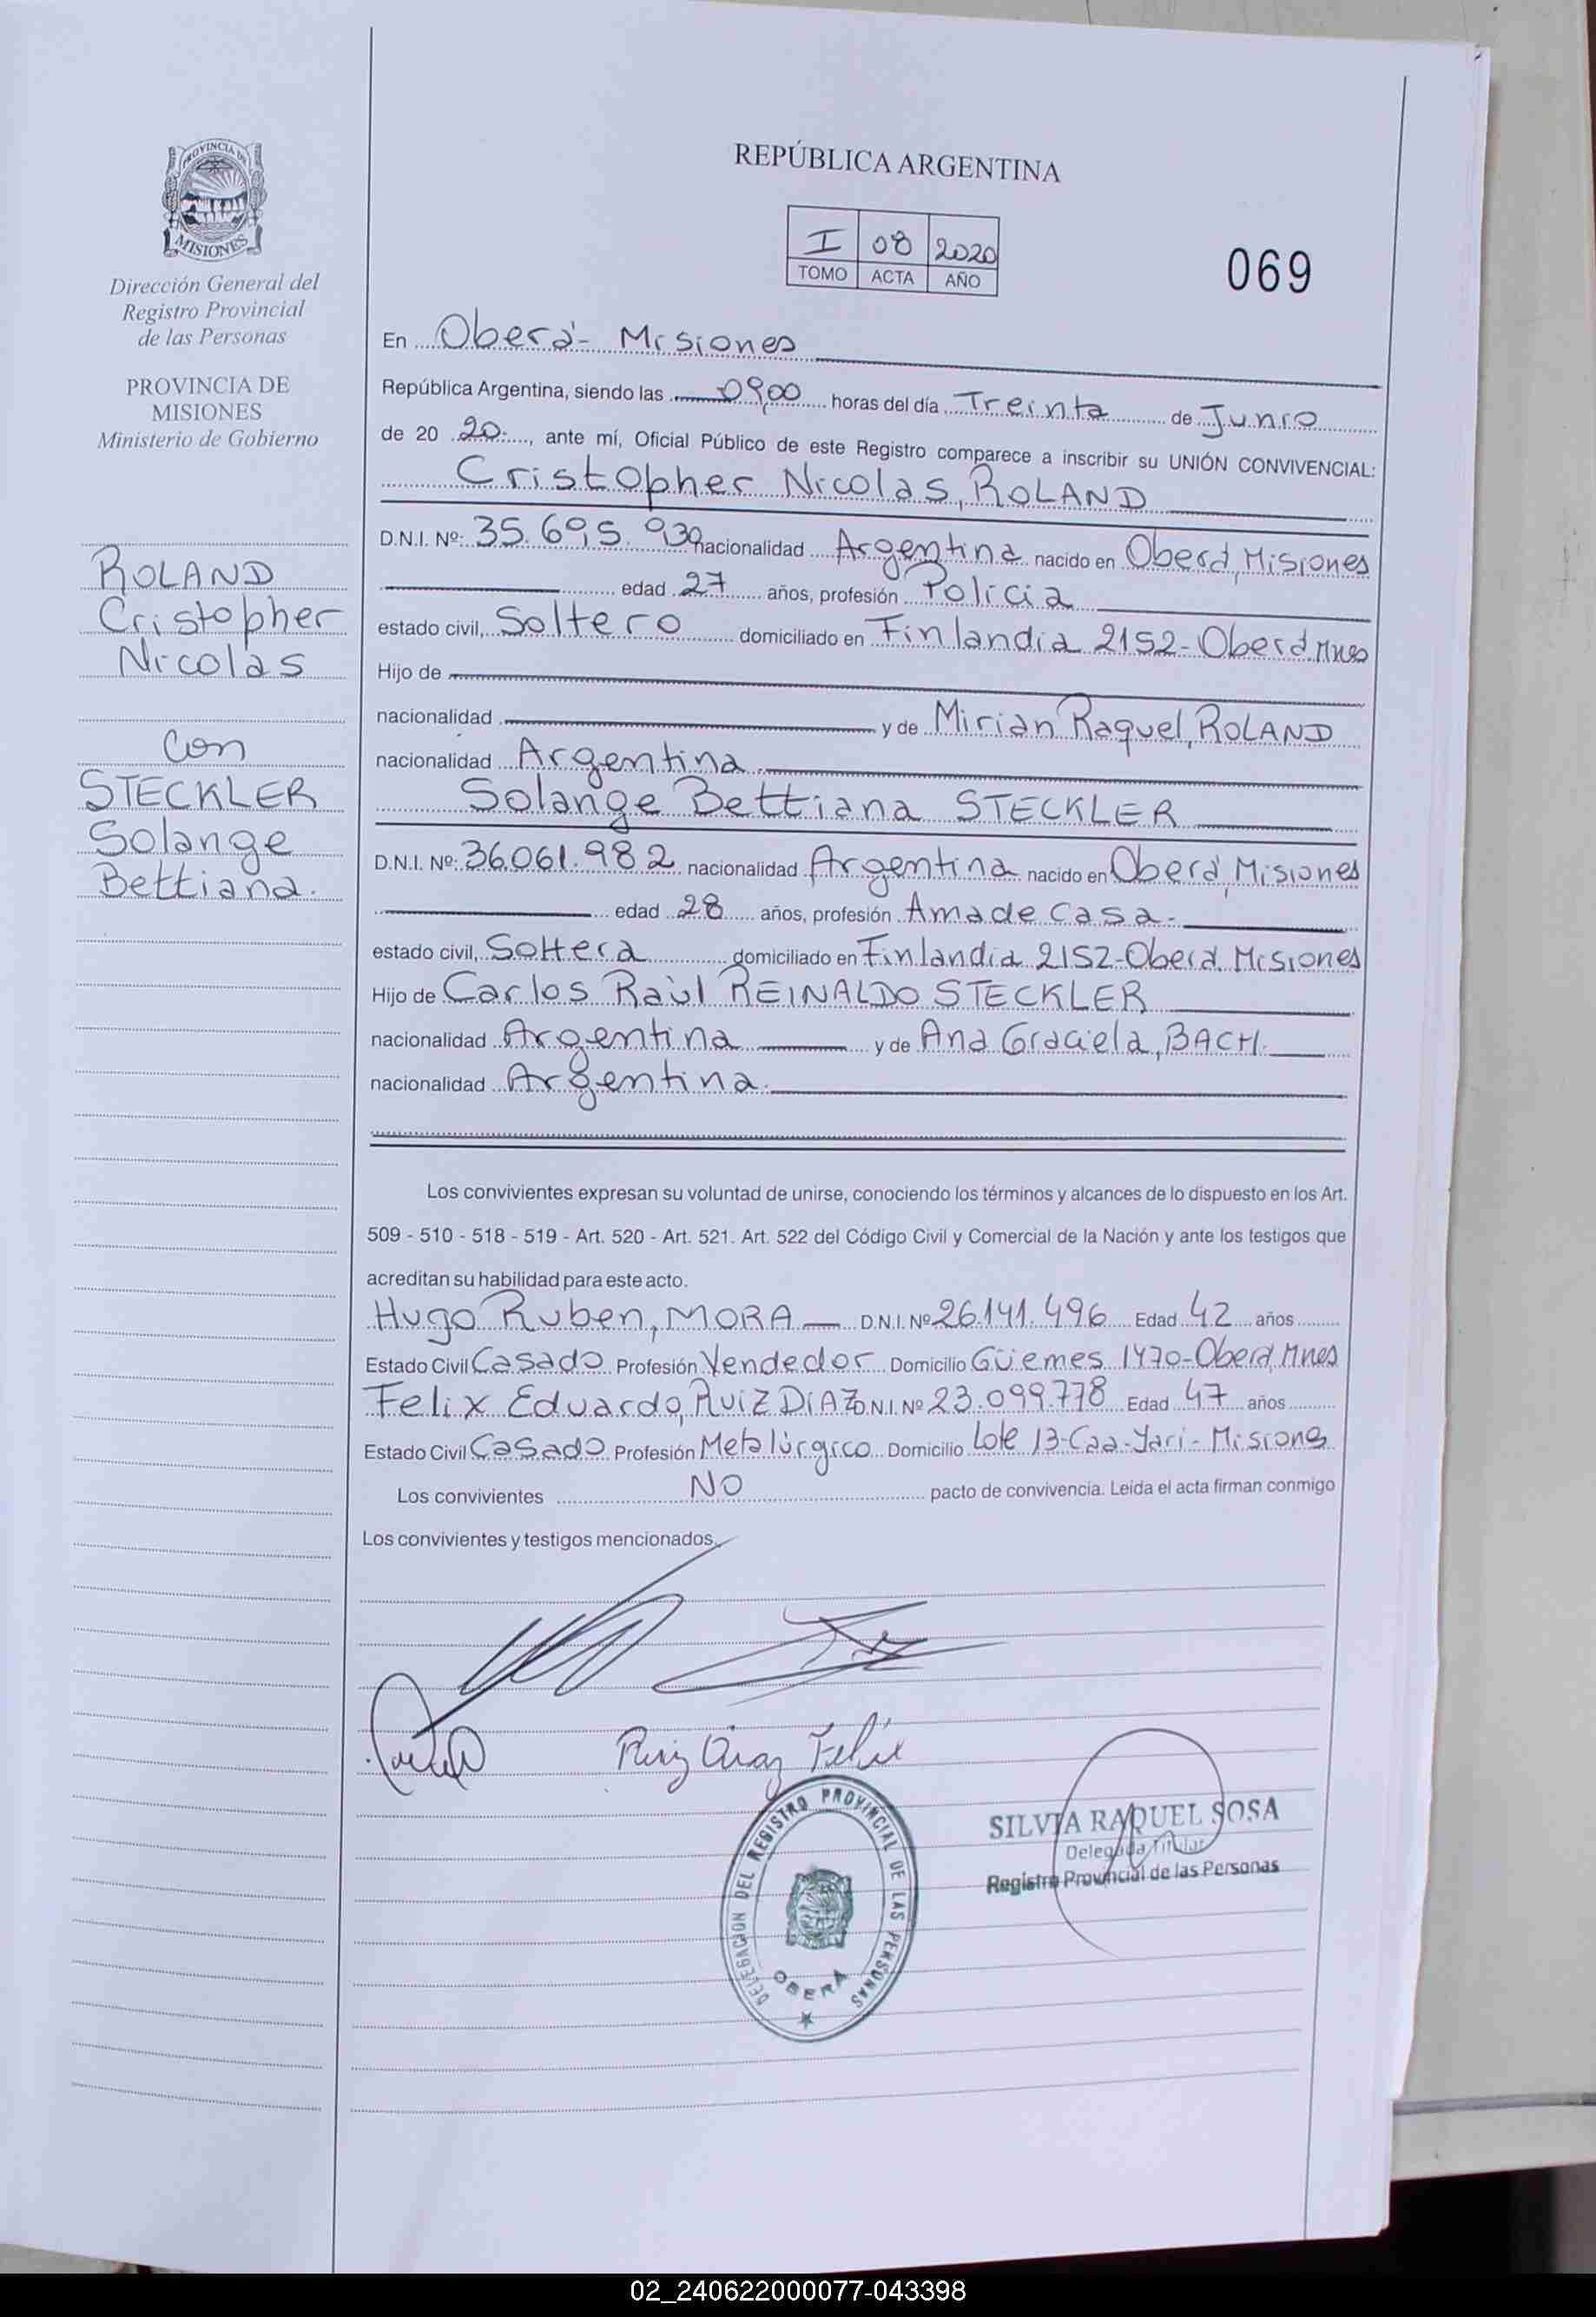 PROVINCIA DE
MISIONES
Dirección General del
Registro Provincial
de las Personas
PROVINCIA DE
MISIONES
Ministerio de Gobierno
ROLAND
Cristopher
Nicolás
Con
STECKLER
Solange
Bettiana.
REPÚBLICA ARGENTINA
I 08 2020
TOMO ACTA AÑO
069
En Oberá - Misiones
República Argentina, siendo las 09,00 horas del día Treinta de Junio
de 20 20, ante mí, Oficial Público de este Registro comparece a inscribir su UNIÓN CONVIVENCIAL:
Cristopher Nicolas, ROLAND
D.N.I. Nº: 35.695.930 nacionalidad Argentina nacido en Oberá, Misiones
edad 27 años, profesión Policia
estado civil, Soltero domiciliado en Finlandia 2152-Oberá Mnes
Hijo de
nacionalidad y de Mirian Raquel, ROLAND
nacionalidad Argentina
Solange Bettiana STECKLER
D.N.I. Nº: 36.061.982 nacionalidad Argentina nacido en Oberá, Misiones
edad 28 años, profesión Ama de Casa.
estado civil, Soltera domiciliado en Finlandia 2152-Oberá Misiones
Hijo de Carlos Raùl REINALDO STECKLER
nacionalidad Argentina y de Ana Graciela, BACH.
nacionalidad Argentina.
Los convivientes expresan su voluntad de unirse, conociendo los términos y alcances de lo dispuesto en los Art.
509 - 510 - 518 - 519 - Art. 520 - Art. 521. Art. 522 del Código Civil y Comercial de la Nación y ante los testigos que
acreditan su habilidad para este acto.
Hugo Ruben, MORA D.N.I. Nº 26.141.496 Edad 42 años
Estado Civil Casado Profesión Vendedor Domicilio Güemes 1470-Oberá, Mnes
Felix Eduardo, RUIZ DíAZ D.N.I. Nº 23.099.778 Edad 47 años
Estado Civil Casado Profesión Metalúrgico Domicilio Lote 13-Caa-Yari-Misiones
Los convivientes NO pacto de convivencia. Leída el acta firman conmigo
Los convivientes y testigos mencionados.
Ruiz Diaz Felix
DELEGACION DEL REGISTRO PROVINCIAL DE LAS PERSONAS
OBERÁ
SILVIA RAQUEL SOSA
Delegada Titular
Registro Provincial de las Personas
02_240622000077-043398